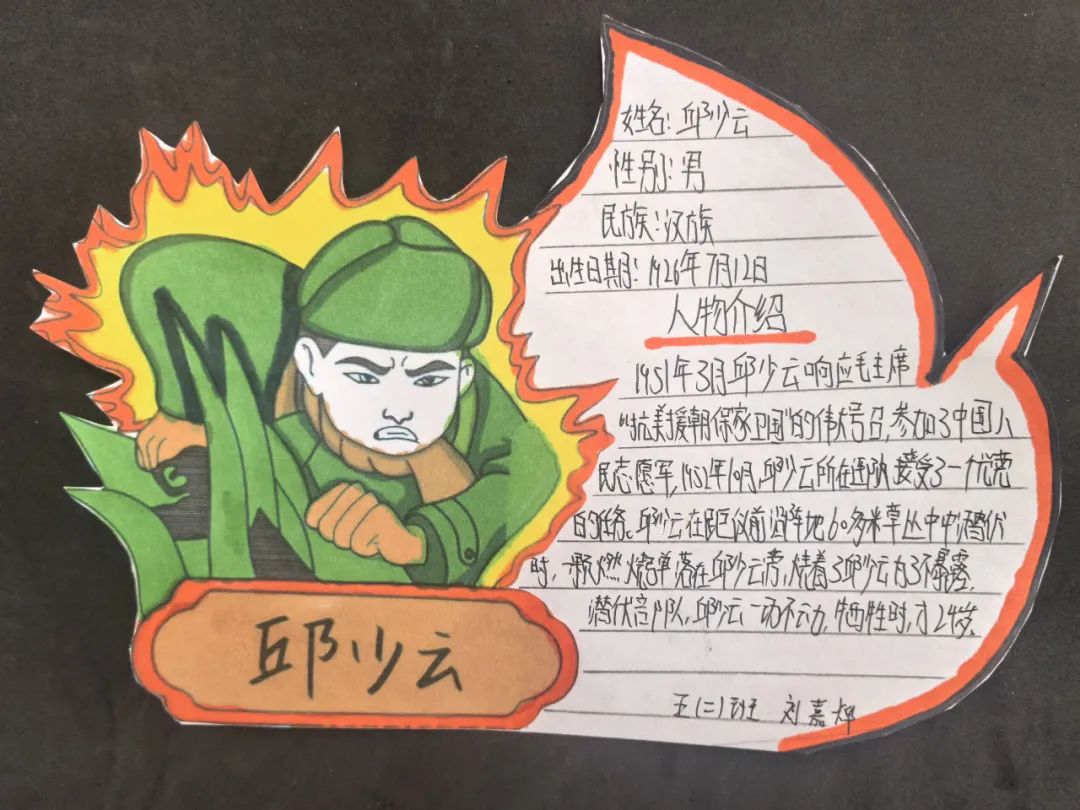 姓名：邱少云
性别：男
民族：汉族
出生日期：1926年7月12日
人物介绍
1951年3月邱少云响应毛主席
"抗美援朝保家卫国"的伟大号召，参加了中国人
民志愿军，1952年10月邱少云所在连队接受了一
的任务。邱少云在距仅前沿阵地60多米草丛中中潜伏
时，一颗燃烧弹落在邱少云旁，烧着了邱少云为了不暴露，
潜伏部队，邱少云一动不动，牺牲时，才24岁。
邱少云
五(二)班 刘嘉